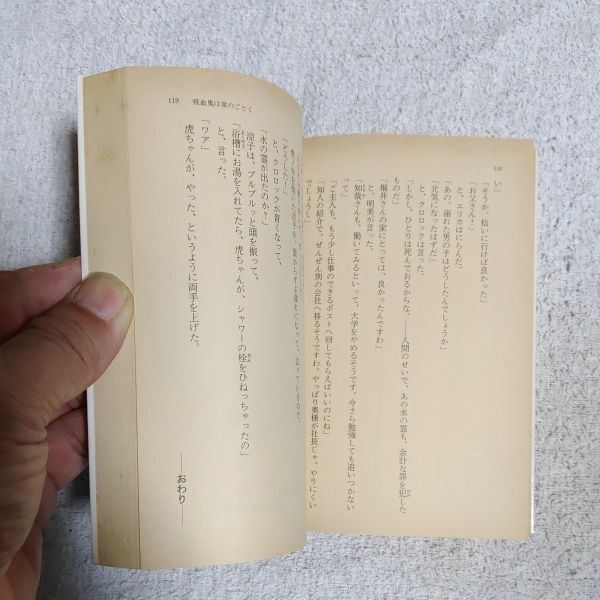 118
い」
「そうか、拾いに行けば良かった」
と、エリカはにらんだ。
「お父さん！」
「あの、溺れた男の子はどうしたんでしょうか」
「元気になったはずだ」
と、クロロックは言った。
「しかし、ひとりは死んでおるからな。――人間のせいで、あの水の霊も、余計な罪を犯した
ものだ」
「堀井さんの家にとっては、良かったんですわ」
と、明美が言った。
「知哉さんも、働いてみるといって、大学をやめるそうです。今さら勉強しても追いつかない
って」
「ご主人も、もう少し仕事のできるポストへ回してもらえばいいのにね」
「知人の紹介で、ぜんぜん別の会社へ移るそうですわ。やっぱり奥様が社長じゃ、やりにくい
でしょうし」
119 吸血鬼は泉のごとく
「どうした！」
と、クロロックが青くなって、
「水の霊が出たのか？」
涼子は、ブルブルッと頭を振って、
「浴槽にお湯を入れてたら、虎ちゃんが、シャワーの栓をひねっちゃったの」
と、言った。
「ワア」
虎ちゃんが、やった、というように両手を上げた。
――おわり――